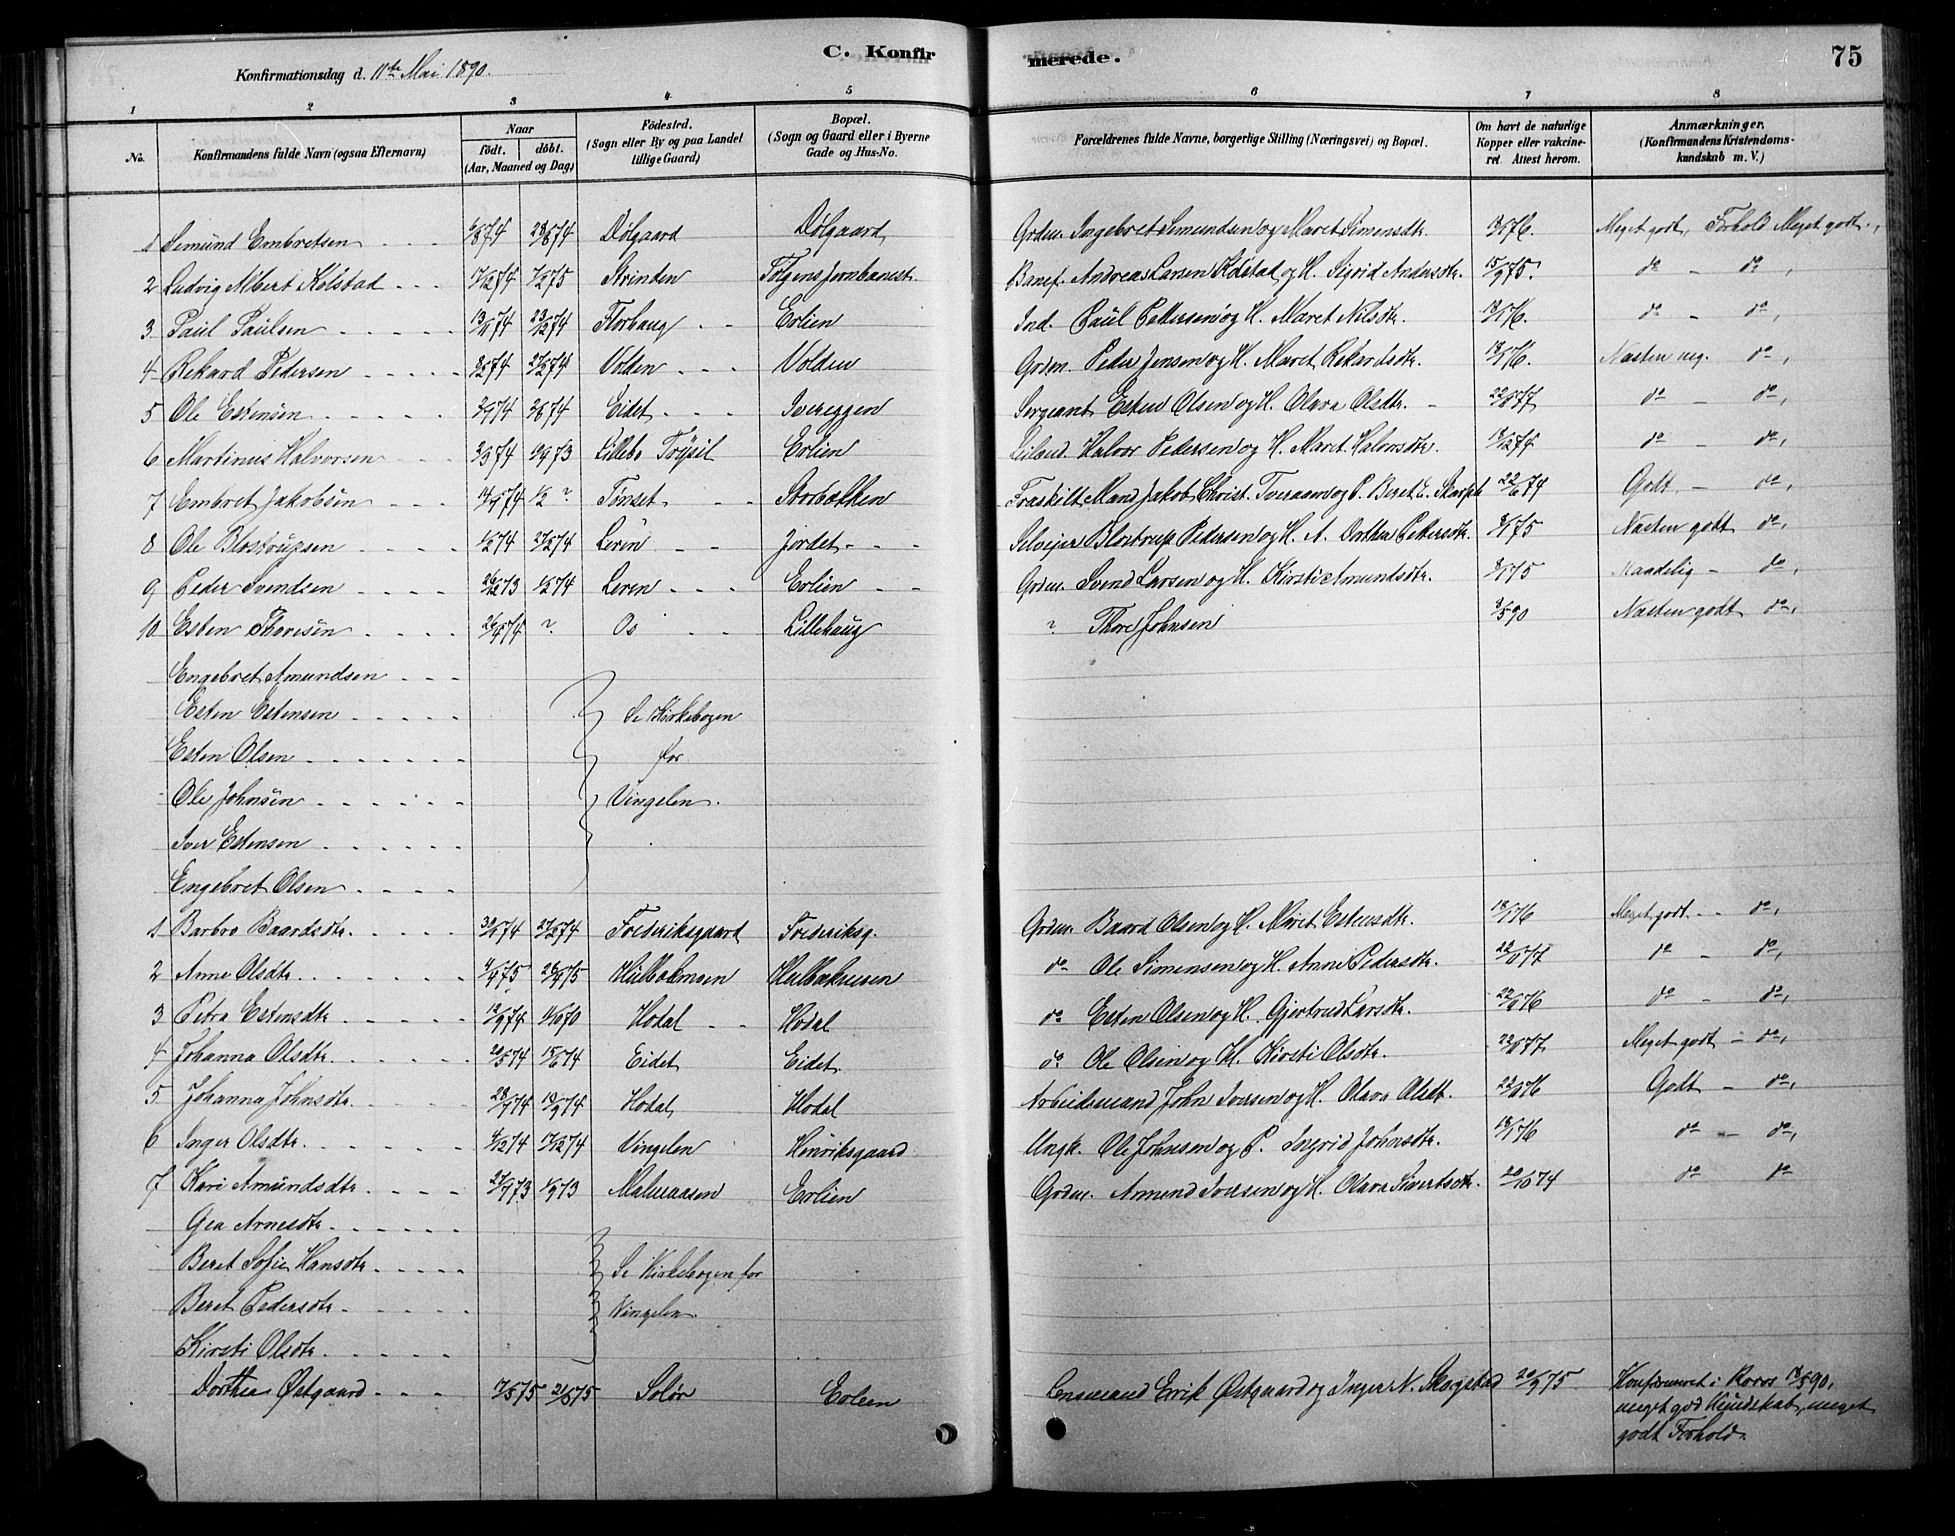 C. Konfirmerede.
75
Konfirmationsdag d. 11te Mai 1890.
1 2 3 4 5 6 7 8
No.
Konfirmandens fulde Navn (ogsaa Efternavn)
Naar
födt. döbt.
(Aar, Maaned og Dag)
Födested.
(Sogn eller By og paa Landet
tillige Gaard)
Bopæl.
(Sogn og Gaard eller i Byerne
Gade og Hus-No.
Forældrenes fulde Navne, borgerlige Stilling (Næringsvei) og Bopæl.
Om havt de naturlige
Kopper eller vakcine-
ret Attest herom.
Anmærkninger.
(Konfirmandens Kristendoms-
kundskab m. V.)
1 Semund Embretsen Dølgaard Dølgaard Grdm. Ingebret Semundsen og Maret Simensdtr. Meget godt, Forhold Meget godt.,
2 Ludvig Albert Kolstad Strinden Tolgens Jernbanest. Banef. Andreas Larsen Kolstad og H. Sigrid Andersdtr. 15/975. do - do,
3 Paul Paulsen 13/1174 23/1274 Florhaug Erlien Ind. Paul Pettersen og H. Maret Nilsdtr. do - do,
4 Rekard Pedersen Volden Volden Grdm. Peder Jensen og H. Maret Rekardsdtr. Næsten meg. do,
5 Ole Estensen Eidet Ivereggen Sergeant Esten Olsen og H. Olava Olsdtr. do - do,
6 Martinus Halvorsen Lillebo Trysil Erlien Halvor Pedersen og H. Maret Halvorsdtr. do - do,
7 Embret Jakobsen Tønset Storbækken Fraskilt Mand Jakob Christ. Tveraaen og P. Beret E. 22/674 Godt - do,
8 Ole Blostrupsen Leren Jordet Selveier Blostrup Pedersen og H. A. Dorthea Pettersdtr. Næsten godt do,
9 Peder Svendsen 26/1273 Leren Erlien Grdm. Svend Larsen og H. Kirsti Amundsdtr. Maadelig - do,
10 Esten Thoresen 26/474 ? Os Lillehaug ? Thore Johnsen 3/590 Næsten godt do,
Engebret Amundsen
Esten Estensen Se Kirkebogen
Esten Olsen for
Ole Johnsen Vingelen.
Iver Estensen
Engebret Olsen
1 Barbro Baardsdtr. Frederiksgaard Frederiksg. Grdm. Baard Olsen og H. Maret Estensdtr. Meget godt - do,
2 Anne Olsdtr. do Ole Simensen og H. Anne Pedersdtr. do - do,
3 Petra Estensdtr Hodal Hodal do Esten Olsen og H. Gjertrud Larsdtr. do - do,
4 Johanna Olsdtr. 20/574 15/674 Eidet Eidet. do Ole Olsen og H. Kirsti Olsdtr. Meget godt - do,
5 Johanna Johnsdtr. Hodal Hodal Arbeidsmand John Iversen og H. Olava Olsdt. Godt - do,
6 Inger Olsdtr. Vingelen Henriksgaard Ungk. Ole Johnsen og P. Ingrid Johnsdtr. do - do,
7 Kari Amundsdtr. Malmaasen Erlien Grdm. Ammund Iversen og H. Olava Sivertsdtr. 20/1074 do do
Gea Arnesdtr.
Beret Sofie Hansdtr. Se Kirkebogen for
Beret Pedersdtr. Vingelen.
Kirsti Olsdtr.
Dorthea Østgaard Solør Erlien Lensmand Erik Østgaard og Inger N. Skogstad 20/975 Konfirmeret i Røros
meget god Kundskab, meget
godt Forhold.